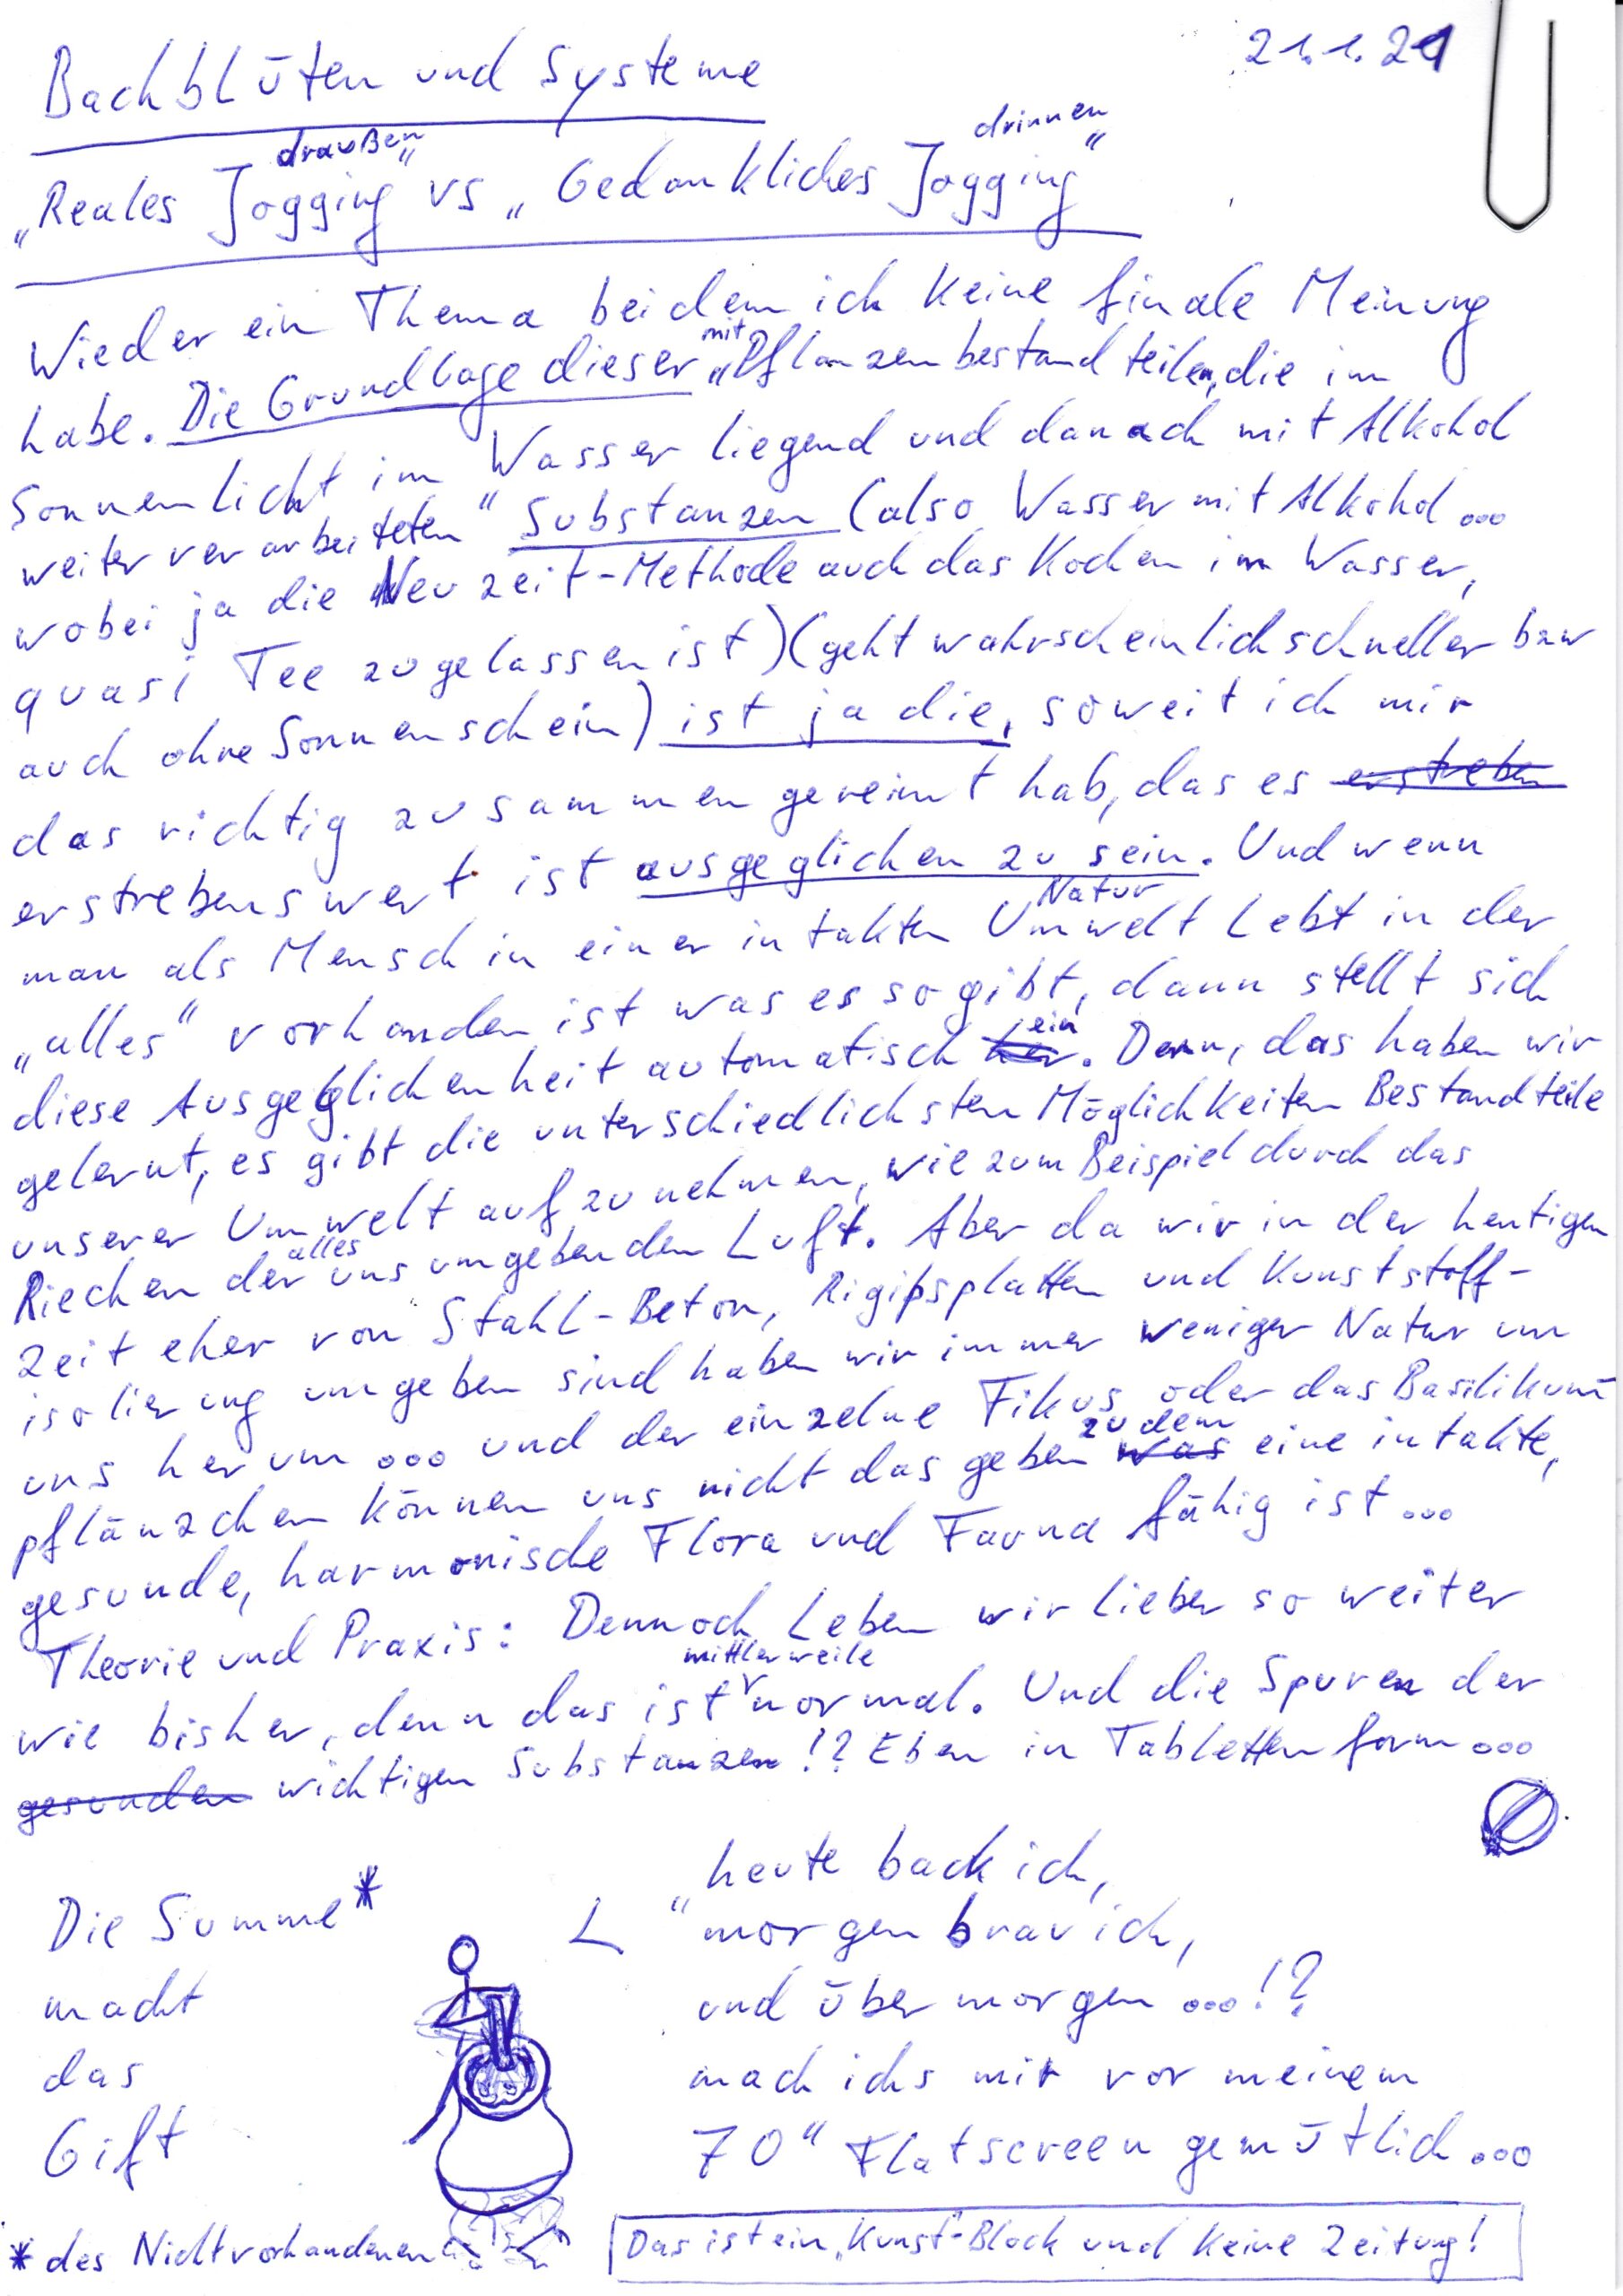 21.1.21
Bachblüten und Systeme
draußen drinnen
„Reales Jogging" vs „Gedankliches Jogging"
Wieder ein Thema bei dem ich keine finale Meinung
habe. Die Grundlage dieser mit „Pflanzenbestandteilen, die im
Sonnenlicht im Wasser liegend und danach mit Alkohol
weiterverarbeiteten" Substanzen (also Wasser mit Alkohol...
wobei ja die Neuzeit-Methode auch das Kochen im Wasser,
quasi Tee zugelassen ist) (geht wahrscheinlich schneller bzw
auch ohne Sonnenschein) ist ja die, soweit ich mir
das richtig zusammen gereimt hab, das es erstreben
erstrebenswert ist ausgeglichen zu sein. Und wenn
Natur
man als Mensch in einer intakten Umwelt lebt in der
„alles" vorhanden ist was es so gibt, dann stellt sich
diese Ausgeglichenheit automatisch her ein. Denn, das haben wir
gelernt, es gibt die unterschiedlichsten Möglichkeiten Bestandteile
unserer Umwelt aufzunehmen, wie zum Beispiel durch das
Riechen der alles uns umgebenden Luft. Aber da wir in der heutigen
Zeit eher von Stahl-Beton, Rigipsplatten und Kunststoff-
isolierung umgeben sind haben wir immer weniger Natur um
uns herum... und der einzelne Fikus oder das Basilikum
pflänzchen können uns nicht das geben was zu dem eine intakte,
gesunde, harmonische Flora und Fauna fähig ist...
Theorie und Praxis: Dennoch Leben wir lieber so weiter
wie bisher, denn das ist mittlerweile normal. Und die Spuren der
gesunden wichtigen Substanzen!? Eben in Tablettenform...
Die Summe*
macht
das
Gift
„heute back ich,
morgen brav ich,
und übermorgen...!?
mach ichs mir vor meinem
70" Flatscreen gemütlich...
* des Nichtvorhandenen
Das ist ein „Kunst"-Block und keine Zeitung!